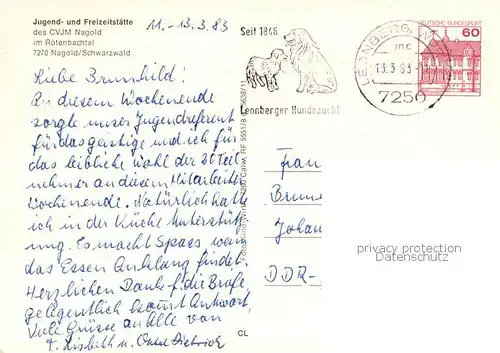 Jugend- und Freizeitstätte
des CVJM Nagold
im Rötenbachtal
7270 Nagold/Schwarzwald
11.-13.3.83
Liebe Brunhild!
An diesem Wochenende
sorgte unser Jugendreferent
für das geistige und ich für
das leibliche wohl der 20 Teil-
nehmer an diesem Mitarbeiter
Wochenende. Natürlich hatte
ich in der Küche Unterstütz
ung. Es macht Spass, wenn
das Essen Anklang findet.
Herzlichen Dank f. die Briefe,
gelegentlich kommt Antwort,
Viele Grüsse an Alle von
T. Lisbeth u. Onkel Dietrich
Seit 1846
Leonberger Hundezucht
LEONBERG, WÜRTT
13.3.83
7250
DEUTSCHE BUNDESPOST
60
Frau
Brun
Johan
DDR-
privacy protection
Datenschutz
CL